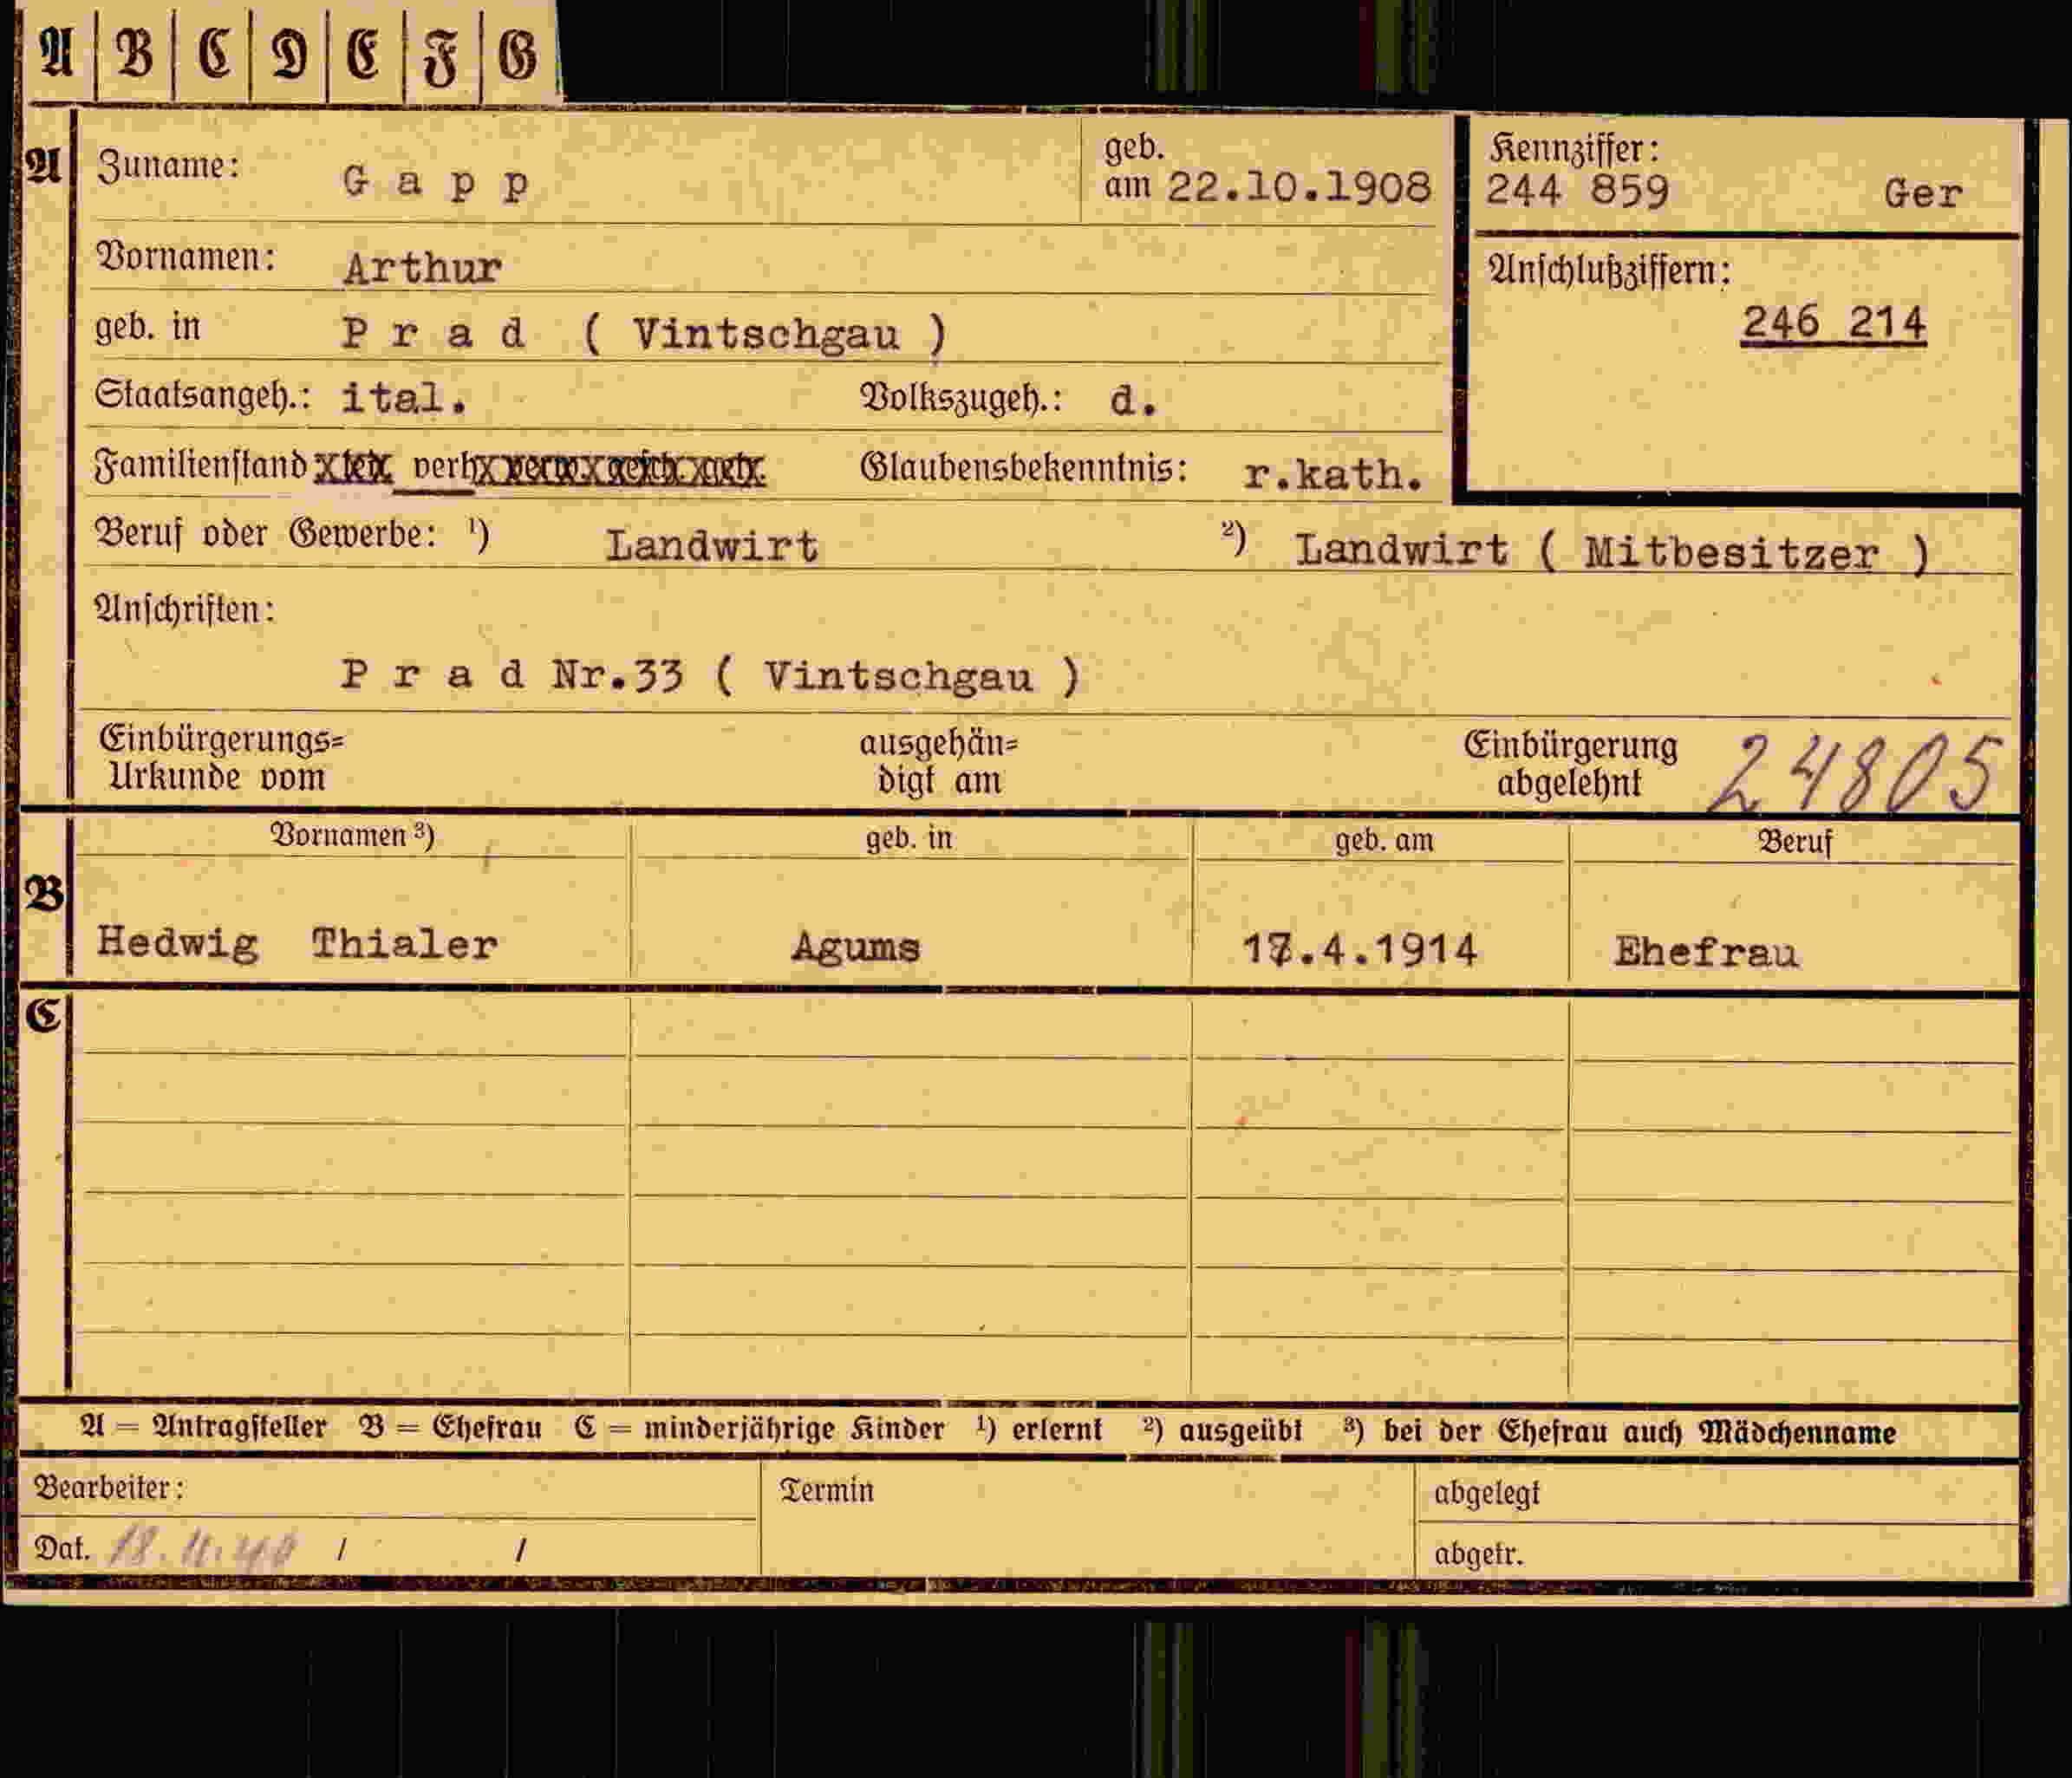 A B C D E F G
A Zuname: Gapp geb. am 22.10.1908 Kennziffer: 244 859 Ger
Vornamen: Arthur Anschlußziffern:
geb. in Prad ( Vintschgau ) 246 214
Staatsangeh.: ital. Volkszugeh.: d.
Familienstand verh Glaubensbekenntnis: r.kath.
Beruf oder Gewerbe: ¹) Landwirt ²) Landwirt ( Mitbesitzer )
Anschriften:
Prad Nr.33 ( Vintschgau )
Einbürgerungs= ausgehän= Einbürgerung 24805
Urkunde vom digt am abgelehnt
B Vornamen ³) geb. in geb. am Beruf
Hedwig Thialer Agums .4.1914 Ehefrau
C
A = Antragsteller B = Ehefrau C = minderjährige Kinder ¹) erlernt ²) ausgeübt ³) bei der Ehefrau auch Mädchenname
Bearbeiter: Termin abgelegt
Dat. / / abgetr.